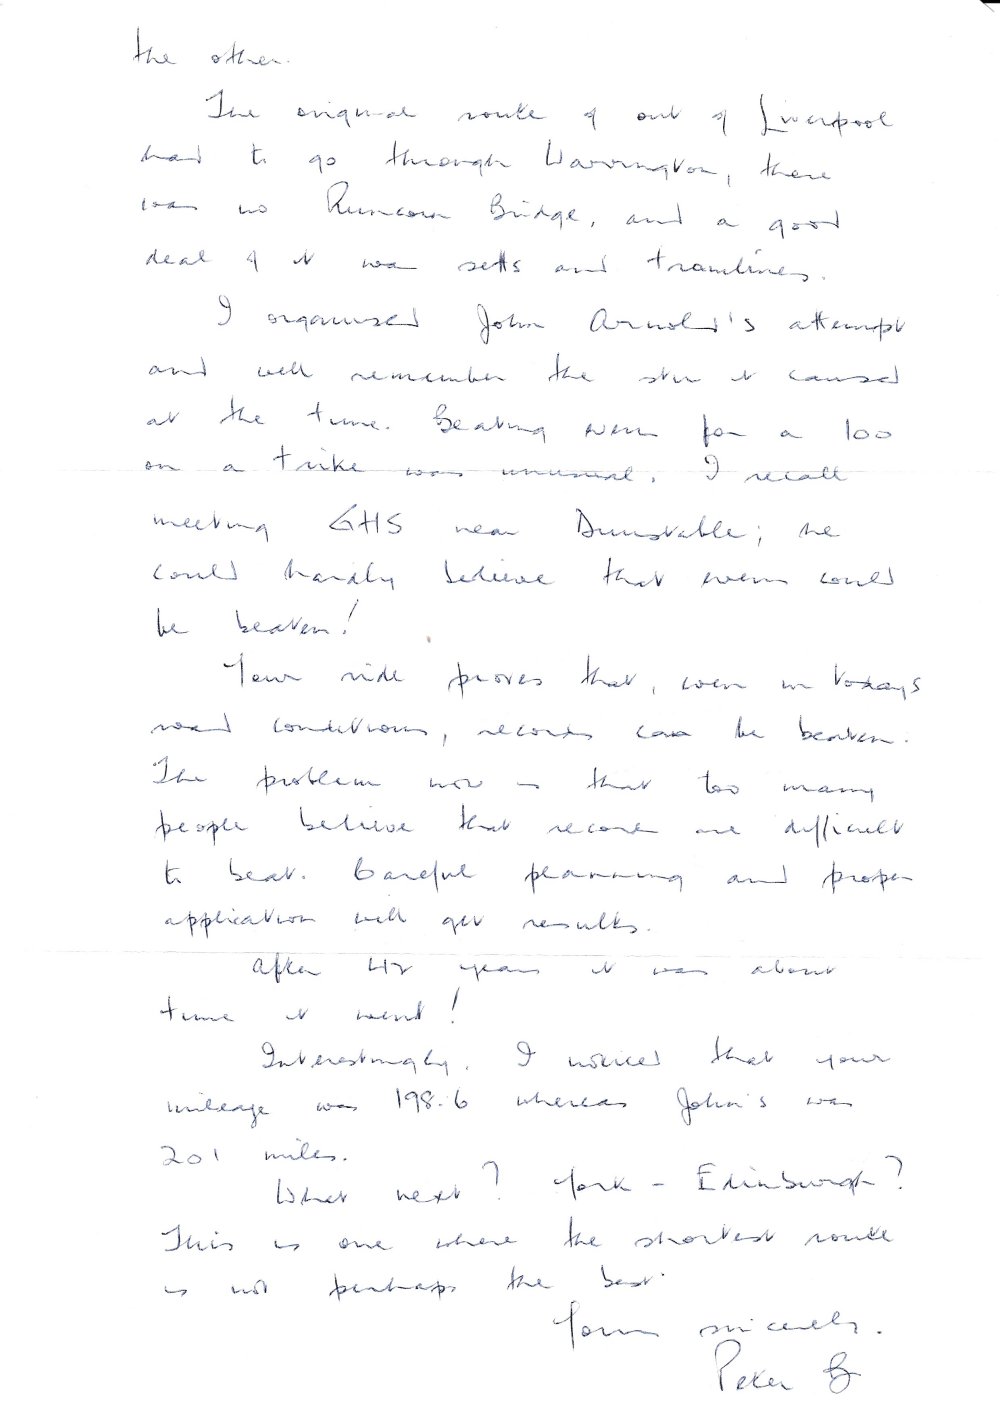 the other.
The original route of out of Liverpool
had to go through Warrington, there
was no Runcorn Bridge, and a good
deal of it was setts and tramlines.
I organised John Arnold's attempt
and well remember the stir it caused
at the time. Beating evens for a 100
on a trike was unusual. I recall
meeting GHS near Dunstable; he
could hardly believe that evens could
be beaten!
Your ride proves that, even in todays
road conditions, records can be beaten.
The problem now is that too many
people believe that records are difficult
to beat. Careful planning and proper
application will get results.
After 42 years it was about
time it went!
Interestingly, I noticed that your
mileage was 198.6 whereas John's was
201 miles.
What next? York - Edinburgh?
This is one where the shortest route
is not perhaps the best.
Yours sincerely.
Peter B